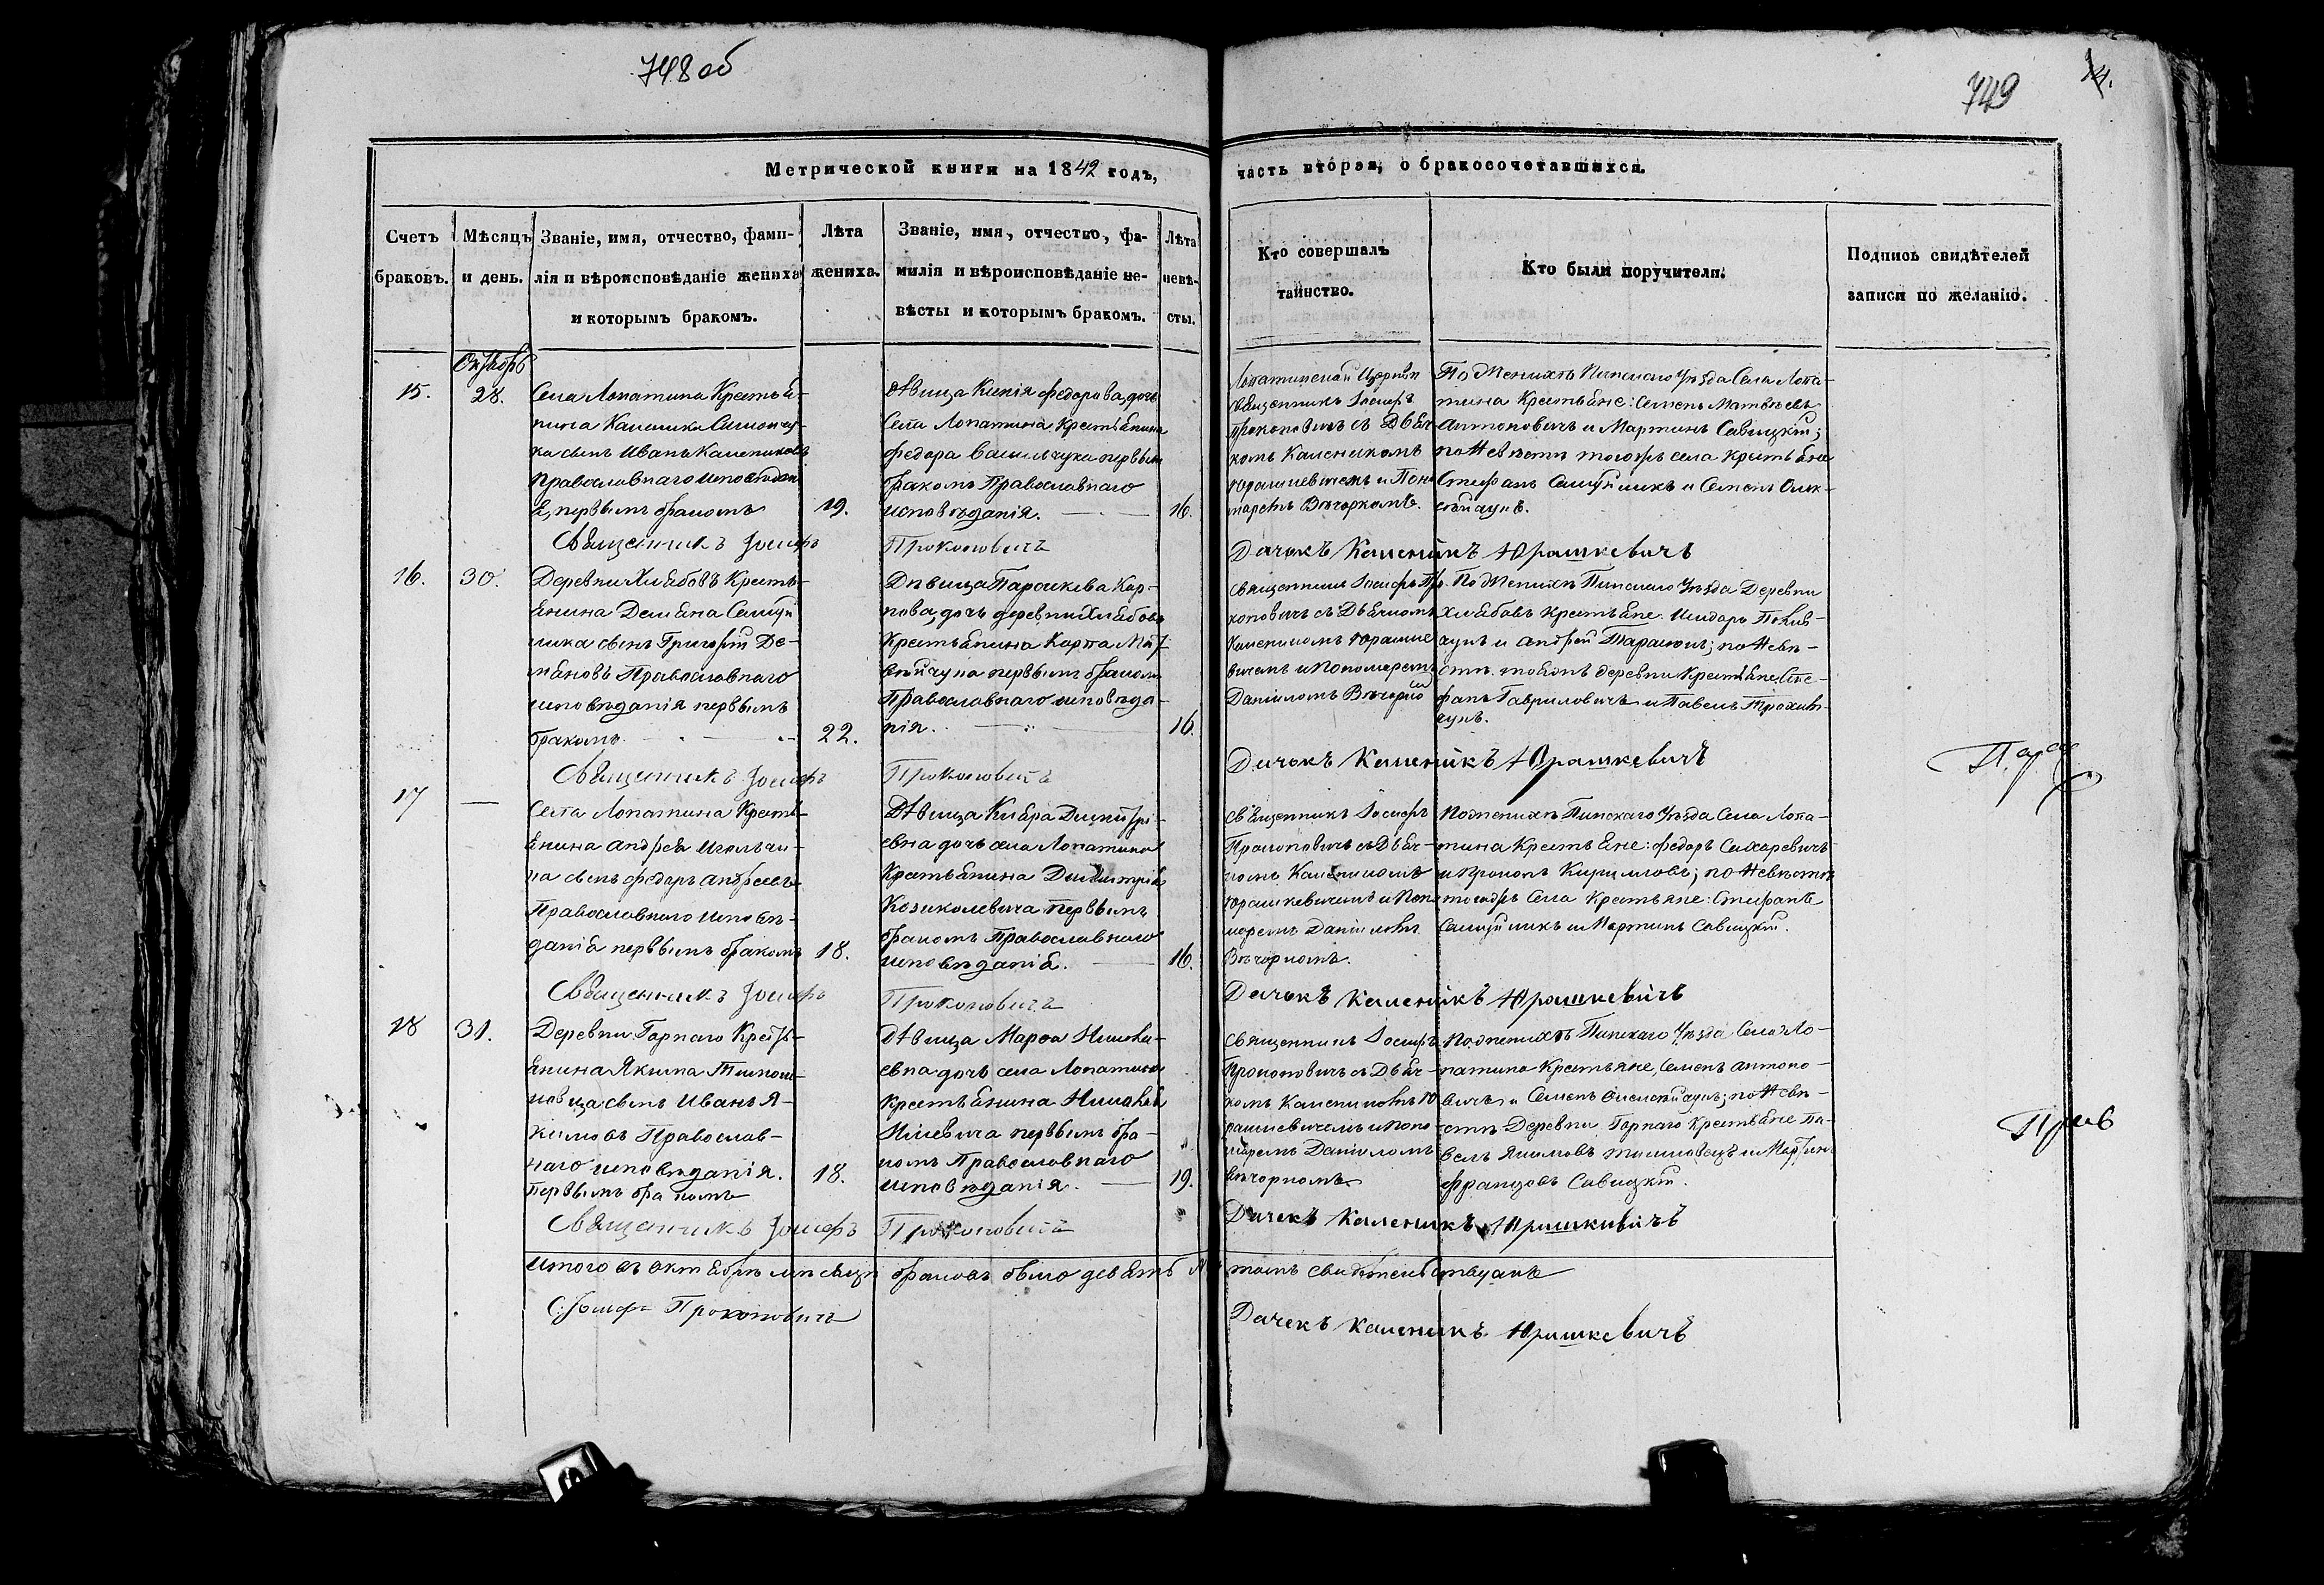 748 об
749
Метрической книги на 1842 годъ,
часть вторая, о бракосочетавшихся.
Счетъ браковъ.
Мѣсяцъ и день.
Званіе, имя, отчество, фами-
лія и вѣроисповѣданіе жениха
и которымъ бракомъ.
Лѣта
жениха.
Званіе, имя, отчество, фа-
милія и вѣроисповѣданіе не-
вѣсты и которымъ бракомъ.
Лѣта
невѣ-
сты.
Кто совершалъ
таинство.
Кто были поручители.
Подпись свидѣтелей
записи по желанію.
Октябрь
15.
28.
Села Лопатина Крестья-
нина Каленика
сынъ Иванъ Калениковъ
Православнаго исповѣдан
я, первымъ бракомъ
19.
Дѣвица Ксенія Федорова, дочь
Села Лопатина Крестьянина
Федора Васильчука первымъ
бракомъ Православнаго
исповѣданія.
16.
Лопатинской Церкви
Священникъ Іосифъ
Прокоповичъ съ Дьяч-
комъ Каленикомъ
Юрашкевичемъ и Поно
маремъ
По Женихѣ Пинскаго Уѣзда Села Лопа-
тина Крестьяне: Семенъ Матвѣевъ
Антоновичъ и Мартинъ Савицкій;
по Невѣстѣ тогожъ села Крестьяне
Стефанъ и Семенъ Олек-
сѣйчукъ.
Священникъ Іосифъ Прокоповичъ
Дячекъ Каленикъ Юрашкевичъ
16.
30.
Деревни Хлябовъ Кресть-
янина Демяна
сынъ Григорій Де-
мяновъ Православнаго
исповѣданія первымъ
бракомъ
22.
Дѣвица Параскева Кар-
пова, дочь деревни Хлябовъ
Крестьянина Карпа Мат-
вѣйчука первымъ бракомъ
Православнаго исповѣда-
нія.
16.
Священникъ Іосифъ Про
коповичъ съ Дьячкомъ
Каленикомъ Юрашке
вичемъ и Пономаремъ
Даніиломъ
По Женихѣ Пинскаго Уѣзда Деревни
Хлябовъ Крестьяне:
и Андрей Таранюкъ; по Невѣ-
стѣ тоежъ деревни Крестьяне Сте-
фанъ Гавриловичъ и Павелъ
Священникъ Іосифъ Прокоповичъ
Дячекъ Каленикъ Юрашкевичъ
17
—
Села Лопатина Кресть-
янина Андрея
сынъ Федоръ Андреевъ
Православнаго исповѣ-
данія первымъ бракомъ
18.
Дѣвица Димитрі-
евна дочь села Лопатина
Крестьянина Димитрія
первымъ
бракомъ Православнаго
исповѣданія.
16.
Священникъ Іосифъ
Прокоповичъ съ Дьяч-
комъ Каленикомъ
Юрашкевичемъ и Поно
маремъ Даніиломъ
По Женихѣ Пинскаго Уѣзда Села Лопа-
тина Крестьяне: Федоръ Сахаревичъ
и Прокопъ Кирилловъ; по Невѣстѣ
тогожъ Села Крестьяне: Стефанъ
и Мартинъ Савицкій.
Священникъ Іосифъ Прокоповичъ
Дячекъ Каленикъ Юрашкевичъ
18
31.
Деревни Горнаго Кресть-
янина Якима
сынъ Иванъ Я-
кимовъ Православ-
наго исповѣданія.
Первымъ бракомъ
18.
Дѣвица Марѳа
евна дочь села Лопатина
Крестьянина
первымъ бра-
комъ Православнаго
исповѣданія.
19.
Священникъ Іосифъ
Прокоповичъ съ Дьяч-
комъ Каленикомъ Ю
рашкевичемъ и Поно-
маремъ Даніиломъ
По Женихѣ Пинскаго Уѣзда Села Ло-
патина Крестьяне, Семенъ Антоно-
вичъ и Семенъ Олексѣйчукъ; по Невѣ-
стѣ Деревни Горнаго Крестьяне Па-
велъ Якимовъ и Мартинъ
Францовъ Савицкій.
Священникъ Іосифъ Прокоповичъ
Дячекъ Каленикъ Юрашкевичъ
Итого въ октябрѣ мѣсяцѣ браковъ было девять
томъ свидѣтельствуемъ
С. Іосифъ Прокоповичъ
Дячекъ Каленикъ Юрашкевичъ